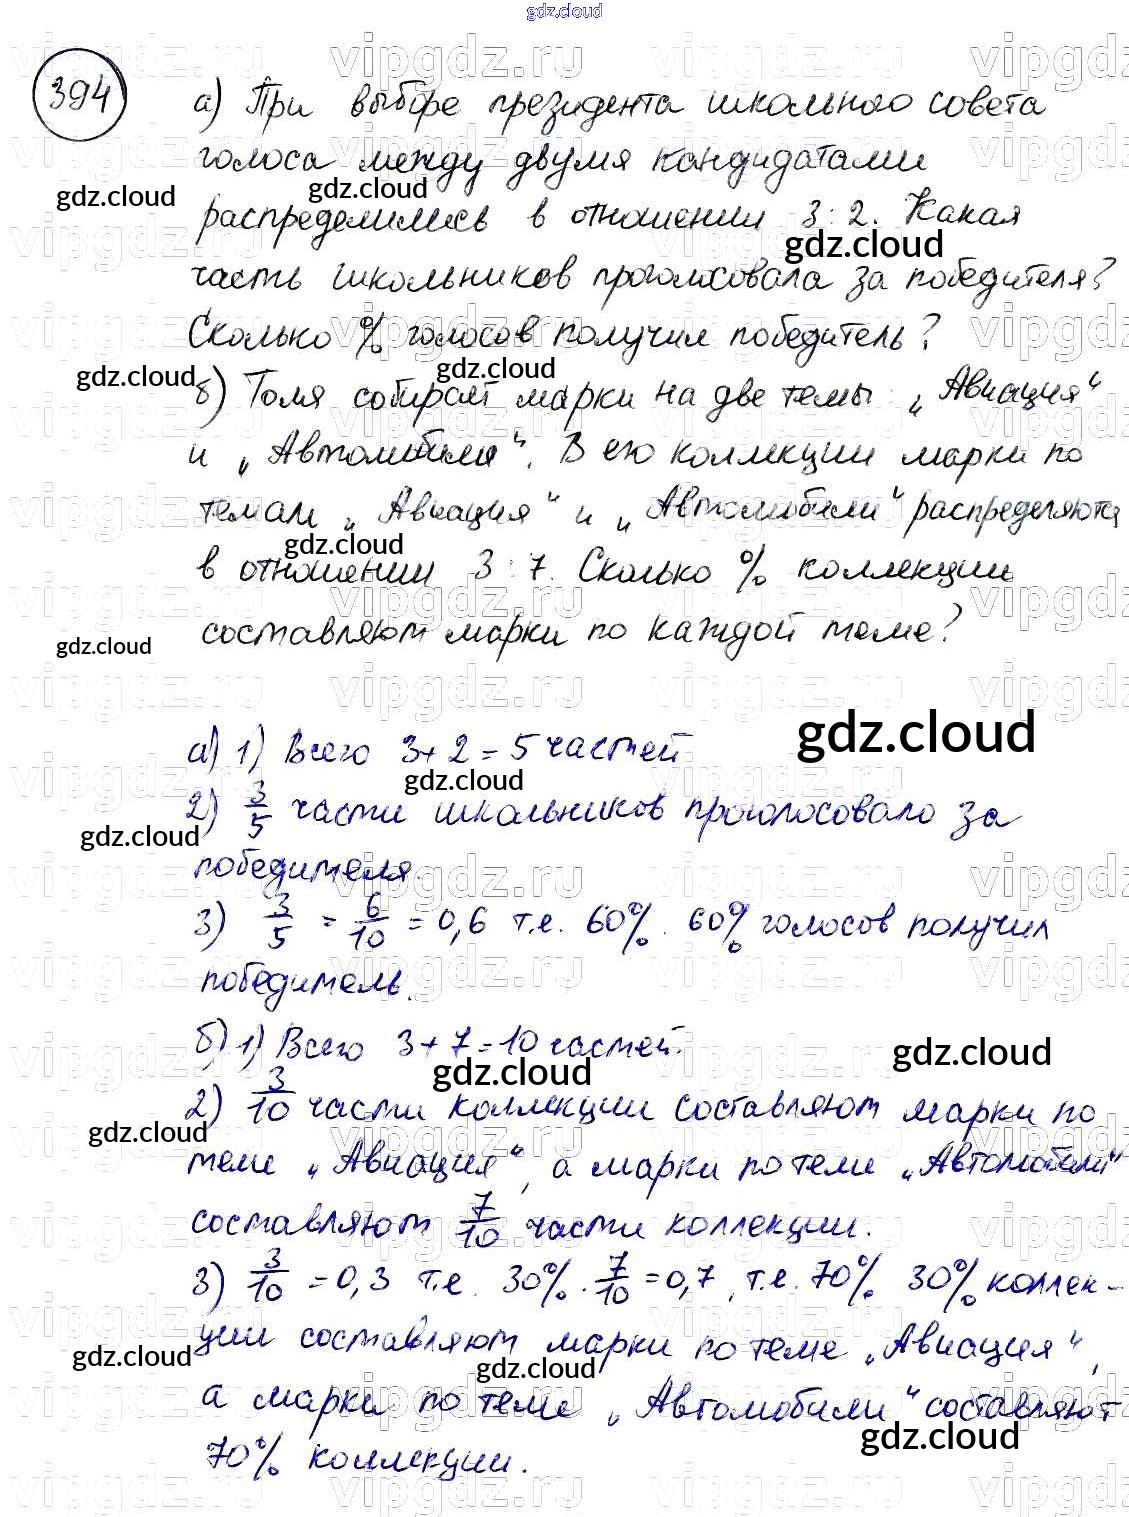 gdz.cloud
394
а) При выборе президента школьного совета
голоса между двумя кандидатами
gdz.cloud gdz.cloud
распределились в отношении 3:2. Какая
gdz.cloud
часть школьников проголосовала за победителя?
Сколько % голосов получил победитель?
gdz.cloud gdz.cloud
б) Толя собирает марки на две темы: „Авиация“
и „Автомобили“. В его коллекции марки по
темам „Авиация“ и „Автомобили“ распределяются
gdz.cloud
в отношении 3:7. Сколько % коллекции
составляют марки по каждой теме?
gdz.cloud
gdz.cloud
а) 1) Всего 3+2=5 частей
gdz.cloud
2) 3/5 части школьников проголосовало за
gdz.cloud
победителя.
3) 3/5 = 6/10 = 0,6 т.е. 60%. 60% голосов получил
победитель.
б) 1) Всего 3+7=10 частей.
gdz.cloud gdz.cloud
2) 3/10 части коллекции составляют марки по
gdz.cloud
теме „Авиация“, а марки по теме „Автомобили“
составляют 7/10 части коллекции.
3) 3/10 = 0,3 т.е. 30%. 7/10 = 0,7, т.е. 70% 30% коллек-
ции составляют марки по теме „Авиация“,
gdz.cloud gdz.cloud
а марки по теме „Автомобили“ составляют
gdz.cloud
70% коллекции.
vipgdz.ru